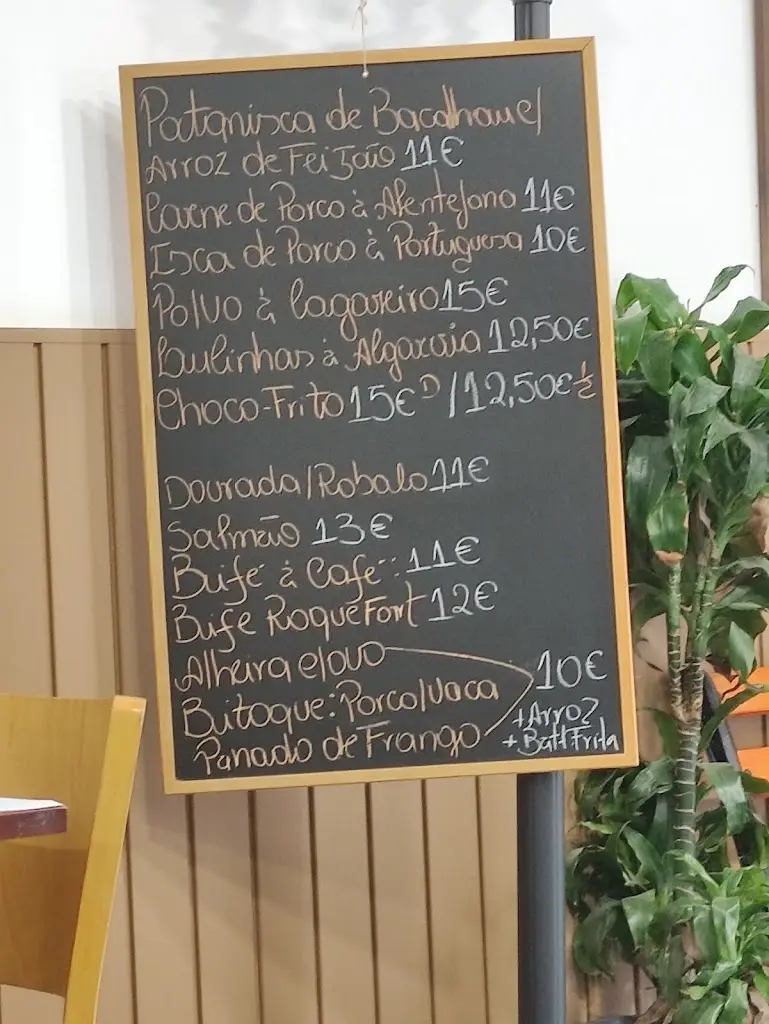 Patanisca de Bacalhau c/
Arroz de Feijão 11€
Carne de Porco à Alentejana 11€
Isca de Porco à Portuguesa 10€
Polvo à Lagareiro 15€
Lulinhas à Algarvia 12,50€
Choco-Frito 15€ D / 12,50€ ½
Dourada/Robalo 11€
Salmão 13€
Bife à Café: 11€
Bife RoqueFort 12€
Alheira c/ovo
Bitoque: Porco/vaca
Panado de Frango
10€
+Arroz
+BattFrita